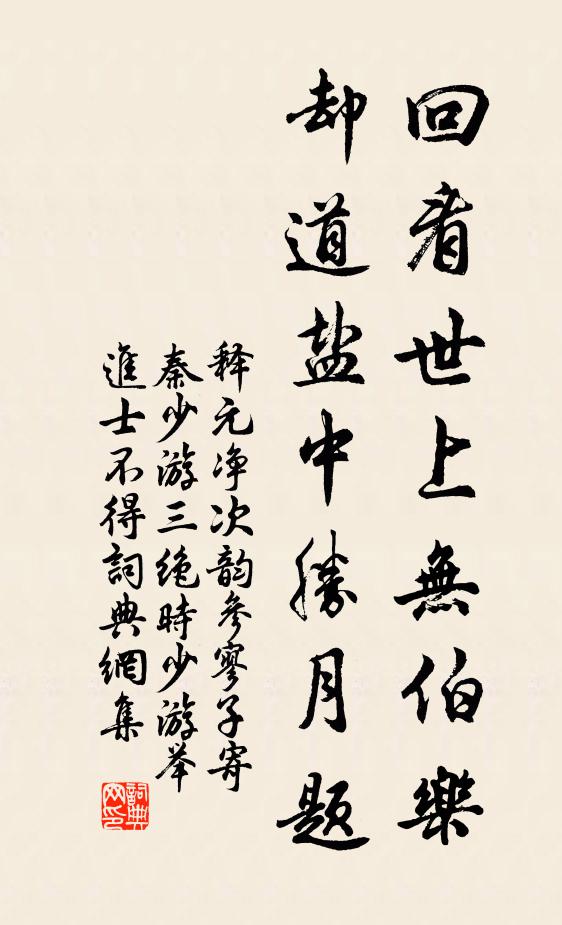 回看世上無伯樂
却道盐中勝月題
释元净次韵參寥子寄
秦少游三絶時少游举
進士不得詞典網集
詞典网印